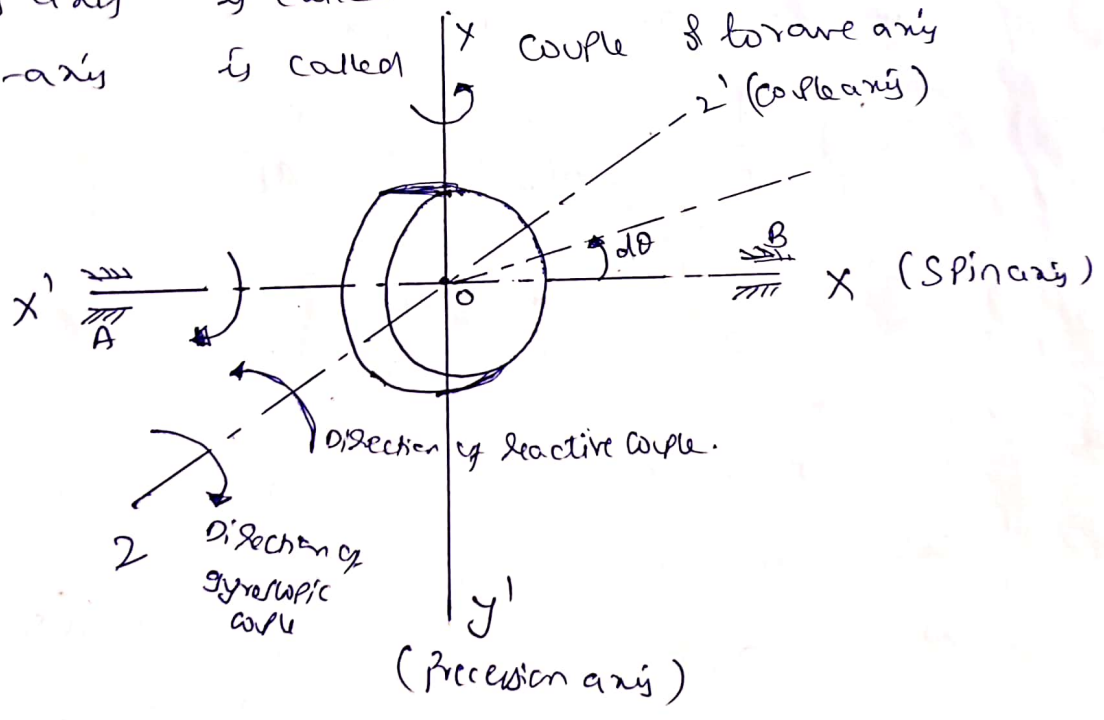 axis is called
-axis is called couple & torave axis
Y
2' (couple axis)
dθ
B
X' X (Spin axis)
A
O
Direction of reactive couple.
2
Direction of
gyroscopic
couple
y'
(Precession axis)